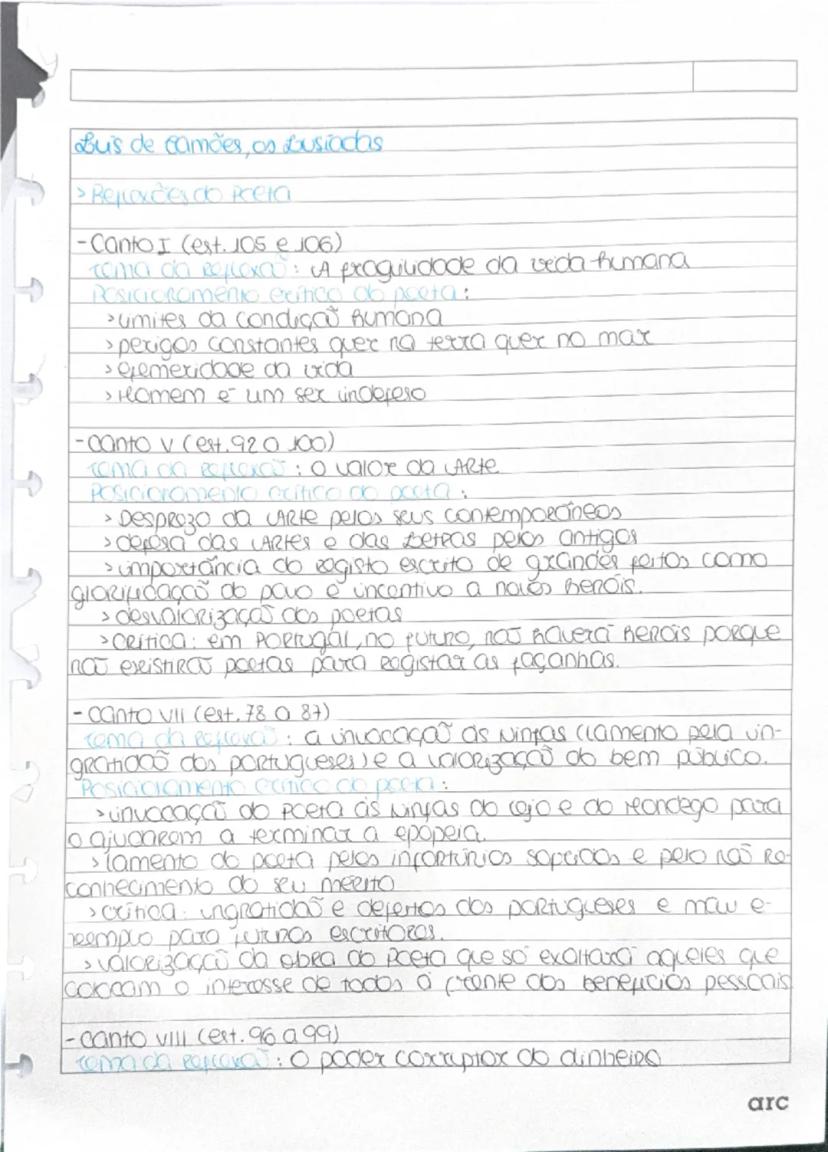 Luís de Camões, os Lusíadas
> Reflexões do Poeta
- Canto I (est. 105 e 106)
Tema da Reflexão: A fragilidade da vida humana
Posicionamento crítico do poeta:
> limites da condição humana
> perigos constantes quer na terra quer no mar
> efemeridade da vida
> Homem é um ser indefeso
- Canto V (est. 92 a 100)
Tema da Reflexão: O valor da Arte
Posicionamento crítico do poeta:
> Desprezo da Arte pelos seus contemporâneos
> defesa das Artes e das Letras pelos antigos
> importância do registo escrito de grandes feitos como
glorificação do povo e incentivo a novos heróis.
> desvalorização dos poetas
> crítica: em Portugal, no futuro, não haverá heróis porque
não existirão poetas para registar as façanhas.
- Canto VII (est. 78 a 87)
Tema da Reflexão: a invocação às Ninfas (lamento pela in-
gratidão dos portugueses) e a valorização do bem público.
Posicionamento crítico do poeta:
> invocação do Poeta às Ninfas do Tejo e do Mondego para
o ajudarem a terminar a epopeia.
> lamento do poeta pelos infortúnios sofridos e pelo não re-
conhecimento do seu mérito
> crítica: ingratidão e defeitos dos portugueses e mau e-
xemplo para futuros escritores.
> valorização da obra do Poeta que só exaltará aqueles que
colocam o interesse de todos à frente dos benefícios pessoais
- Canto VIII (est. 96 a 99)
Tema da Reflexão: O poder corruptor do dinheiro
arc